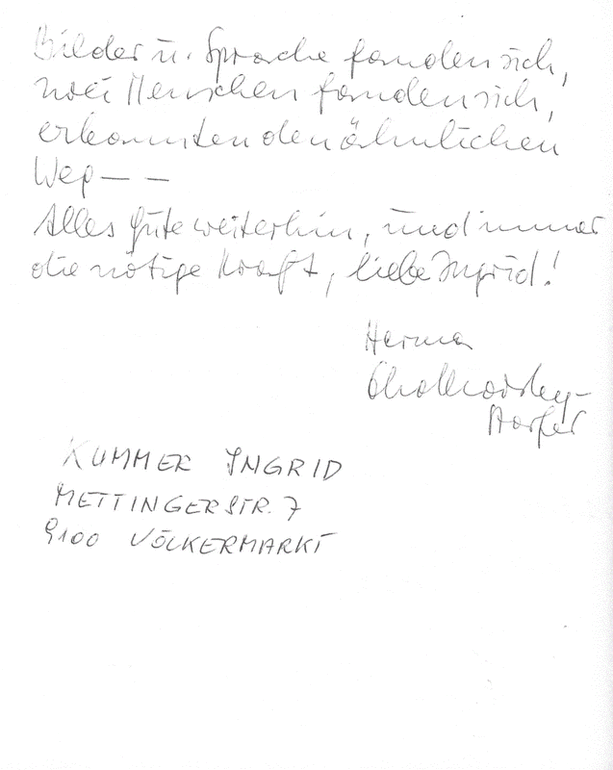 Bilder u. Sprache fanden sich,
zwei Menschen fanden sich,
erkannten den ähnlichen
Weg – –
Alles Gute weiterhin, und immer
die nötige Kraft, liebe Ingrid!
Herma
KUMMER INGRID
METTINGERSTR. 7
9100 VÖLKERMARKT